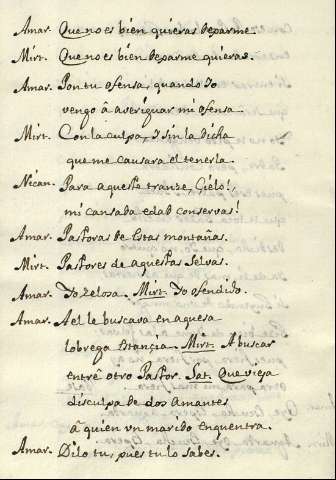 Amar. Que no es bien quieras dexarme.
Mirt. Que no es bien dexarme quieras.
Amar. Pon tu ofensa, quando Yo
vengo â averiguar mi ofensa
Mirt. Con la culpa, y sin la dicha
que me causara el tenerla.
Nican. Para aqueste tranze, Cielo!,
mi cansada edad conservas!
Amar. Pastoras de estas montañas.
Mirt. Pastores de aquestas Selvas.
Amar. Yo zelosa. Mirt. Yo ofendido.
Amar. A el le buscava en aquesa
lobrega estançia. Mirt. A buscar
entrè otro Pastor. Sat. Que vieja
disculpa de dos Amantes
â quien un marido enquentra.
Amar. Dilo tu, pues tu lo sabes.